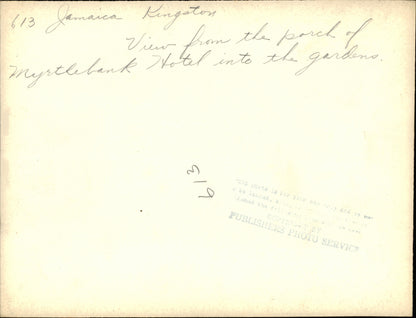 613 Jamaica Kingston
View from the porch of
Myrtlebank Hotel into the gardens.
613
PUBLISHERS PHOTO SERVICE